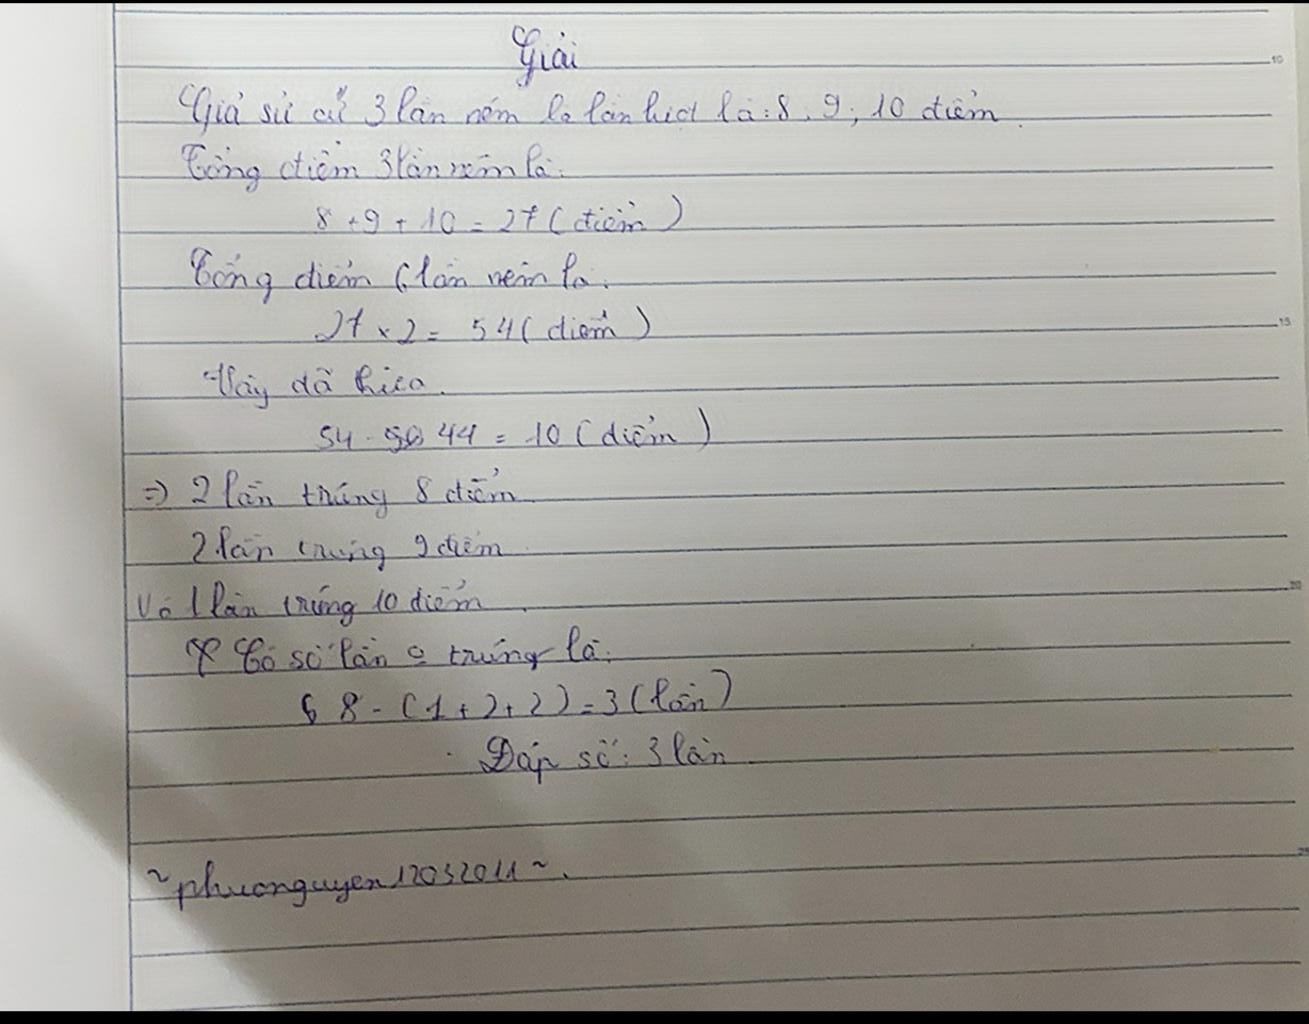 Giải
Giả sử cứ 3 lần ném là lần lượt là: 8, 9, 10 điểm.
Tổng điểm 3 lần ném là:
8 + 9 + 10 = 27 (điểm)
Tổng điểm 6 lần ném là:
27 x 2 = 54 (điểm)
Vậy đã
54 - 44 = 10 (điểm)
=> 2 lần trúng 8 điểm
2 lần trúng 9 điểm
Và 1 lần trúng 10 điểm
Có số lần trúng là:
8 - (1 + 2 + 2) = 3 (lần)
Đáp số: 3 lần
~phuonguyen12032011~.
10
15
20
25